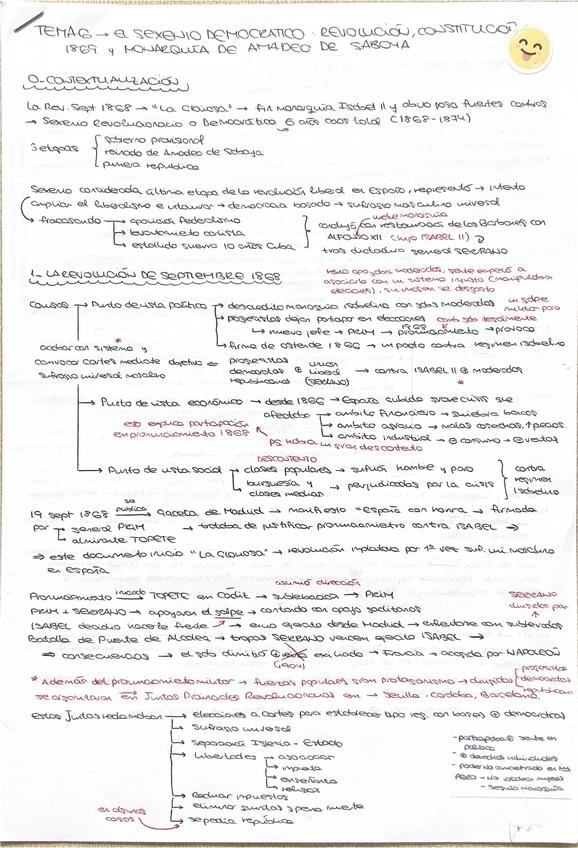 TEMA 6 → EL SEXENIO DEMOCRATICO: REVOLUCIÓN, CONSTITUCIÓN
1869 Y MONARQUÍA DE AMADEO DE SABOYA
0- CONTEXTUALIZACIÓN
La Rev. Sept 1868 → "La Gloriosa" → fin monarquía Isabel II y abvo paso fuertes cambios
→ Sexenio Revolucionario o Democrático 6 años caos total (1868-1874)
3 etapas
gobierno provisional
reinado de Amadeo de Saboya
primera republica
Sexenio considerada última etapa de la revolución liberal en España, representó → intento
ampliar el liberalismo e instaurar → democracia basada → sufragio masculino universal
→ fracasando → oposición Federalismo
→ levantamiento carlista
→ estallido guerra 10 años Cuba
vuelve monarquía
condujo con restauración de los Borbones con
ALFONSO XII (hijo ISABEL II)
tras dictadura general SERRANO
1- LA REVOLUCIÓN DE SEPTIEMBRE 1868
tenía apoyo moderados, gente empezó a
asociarlo con un sistema injusto (manipulaban
elecciones), su imagen se desgastó
causas → Punto de vista político → descredito monarquía isabelina con gob moderados
→ progresistas dejan participar en elecciones
→ nuevo jefe → PRIM → pronunciamiento → provoca
→ firma de Ostende 1866 → impacto contra regimen isabelino
un golpe
militar para
acabar con sistema y
convocar cortes mediante objetivo
sufragio universal masculino
progresistas
demócratas
republicanos
unión
liberal
(SERRANO)
→ contra ISABEL II moderados
→ Punto de vista económico → desde 1866 → España grave crisis que
afectaba → ámbito financiero → quiebra bancos
→ ámbito agrario → malas cosechas, ↑ precios
→ ámbito industrial → consumo → ventas
eso explica participación
en pronunciamiento 1868
había un gran descontento
DESCONTENTO
→ Punto de vista social → clases populares → sufrían hambre y paro
→ burguesía y
clases medias → perjudicados por la crisis
contra
regimen
Isabelino
19 sept 1868 publica Gaceta de Madrid → manifiesto "España con honra" → firmada
por → general PRIM
→ almirante TOPETE
→ trataba de justificar pronunciamiento contra ISABEL ⇒
⇒ este documento inicio "LA Gloriosa" → revolución implantaba por 1ª vez suf. uni. masculino
en España
asumió dirección
Pronunciamiento iniciado TOPETE en Cádiz → sublevación → PRIM
PRIM + SERRANO → apoyaron el golpe → contando con apoyo gaditanos
SERRANO
dirigidas por
ISABEL decidió hacerle frente → envió ejercito desde Madrid → enfrentarse con sublevados
Batalla de Puente de Alcolea → tropas SERRANO vencen ejercito ISABEL →
⇒ consecuencias → el gob dimitió exiliado → Francia → acogida por NAPOLEÓN
* Además del pronunciamiento militar → fuerzas populares gran protagonismo → dirigidas
progresistas
demócratas
republicanos
se organizaron en Juntas Provinciales Revolucionarias en → Sevilla, Córdoba, Barcelona
Estas Juntas reclamaban → elecciones a Cortes para establecer tipo reg. con bases democráticas
→ Sufragio universal
→ Separación Iglesia-Estado
→ Libertades → asociación
→ imprenta
→ enseñanza
→ religión
→ Reducir impuestos
→ eliminar quintas y pena muerte
→ se pedía república
en algunos
casos
- participaba gente en
política
- derechos individuales
- poder no concentrado en rey
PERO - No votaban mujeres
- Seguía monarquía